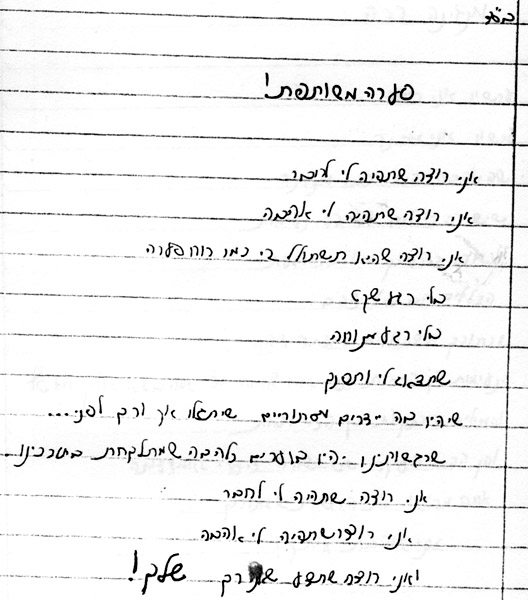 בס"ד
סערה משותפת!
אני רוצה שתהיה לי לחבר
אני רוצה שתהיה לי אהבה
אני רוצה שהיא תשתולל בי כמו רוח סערה
בלי רגע שקט
בלי רגע מנוחה
ותפנק
שיהיו בה יצרים מסתוריים שיתגלו אך ורק לפני...
שרגשותינו יהיו בוערים כלהבה שמתלקחת בתוכינו
אני רוצה שתהיה לי לחבר
אני רוצה שתהיה לי אהבה
ואני רוצה שתדע ורק שלך!